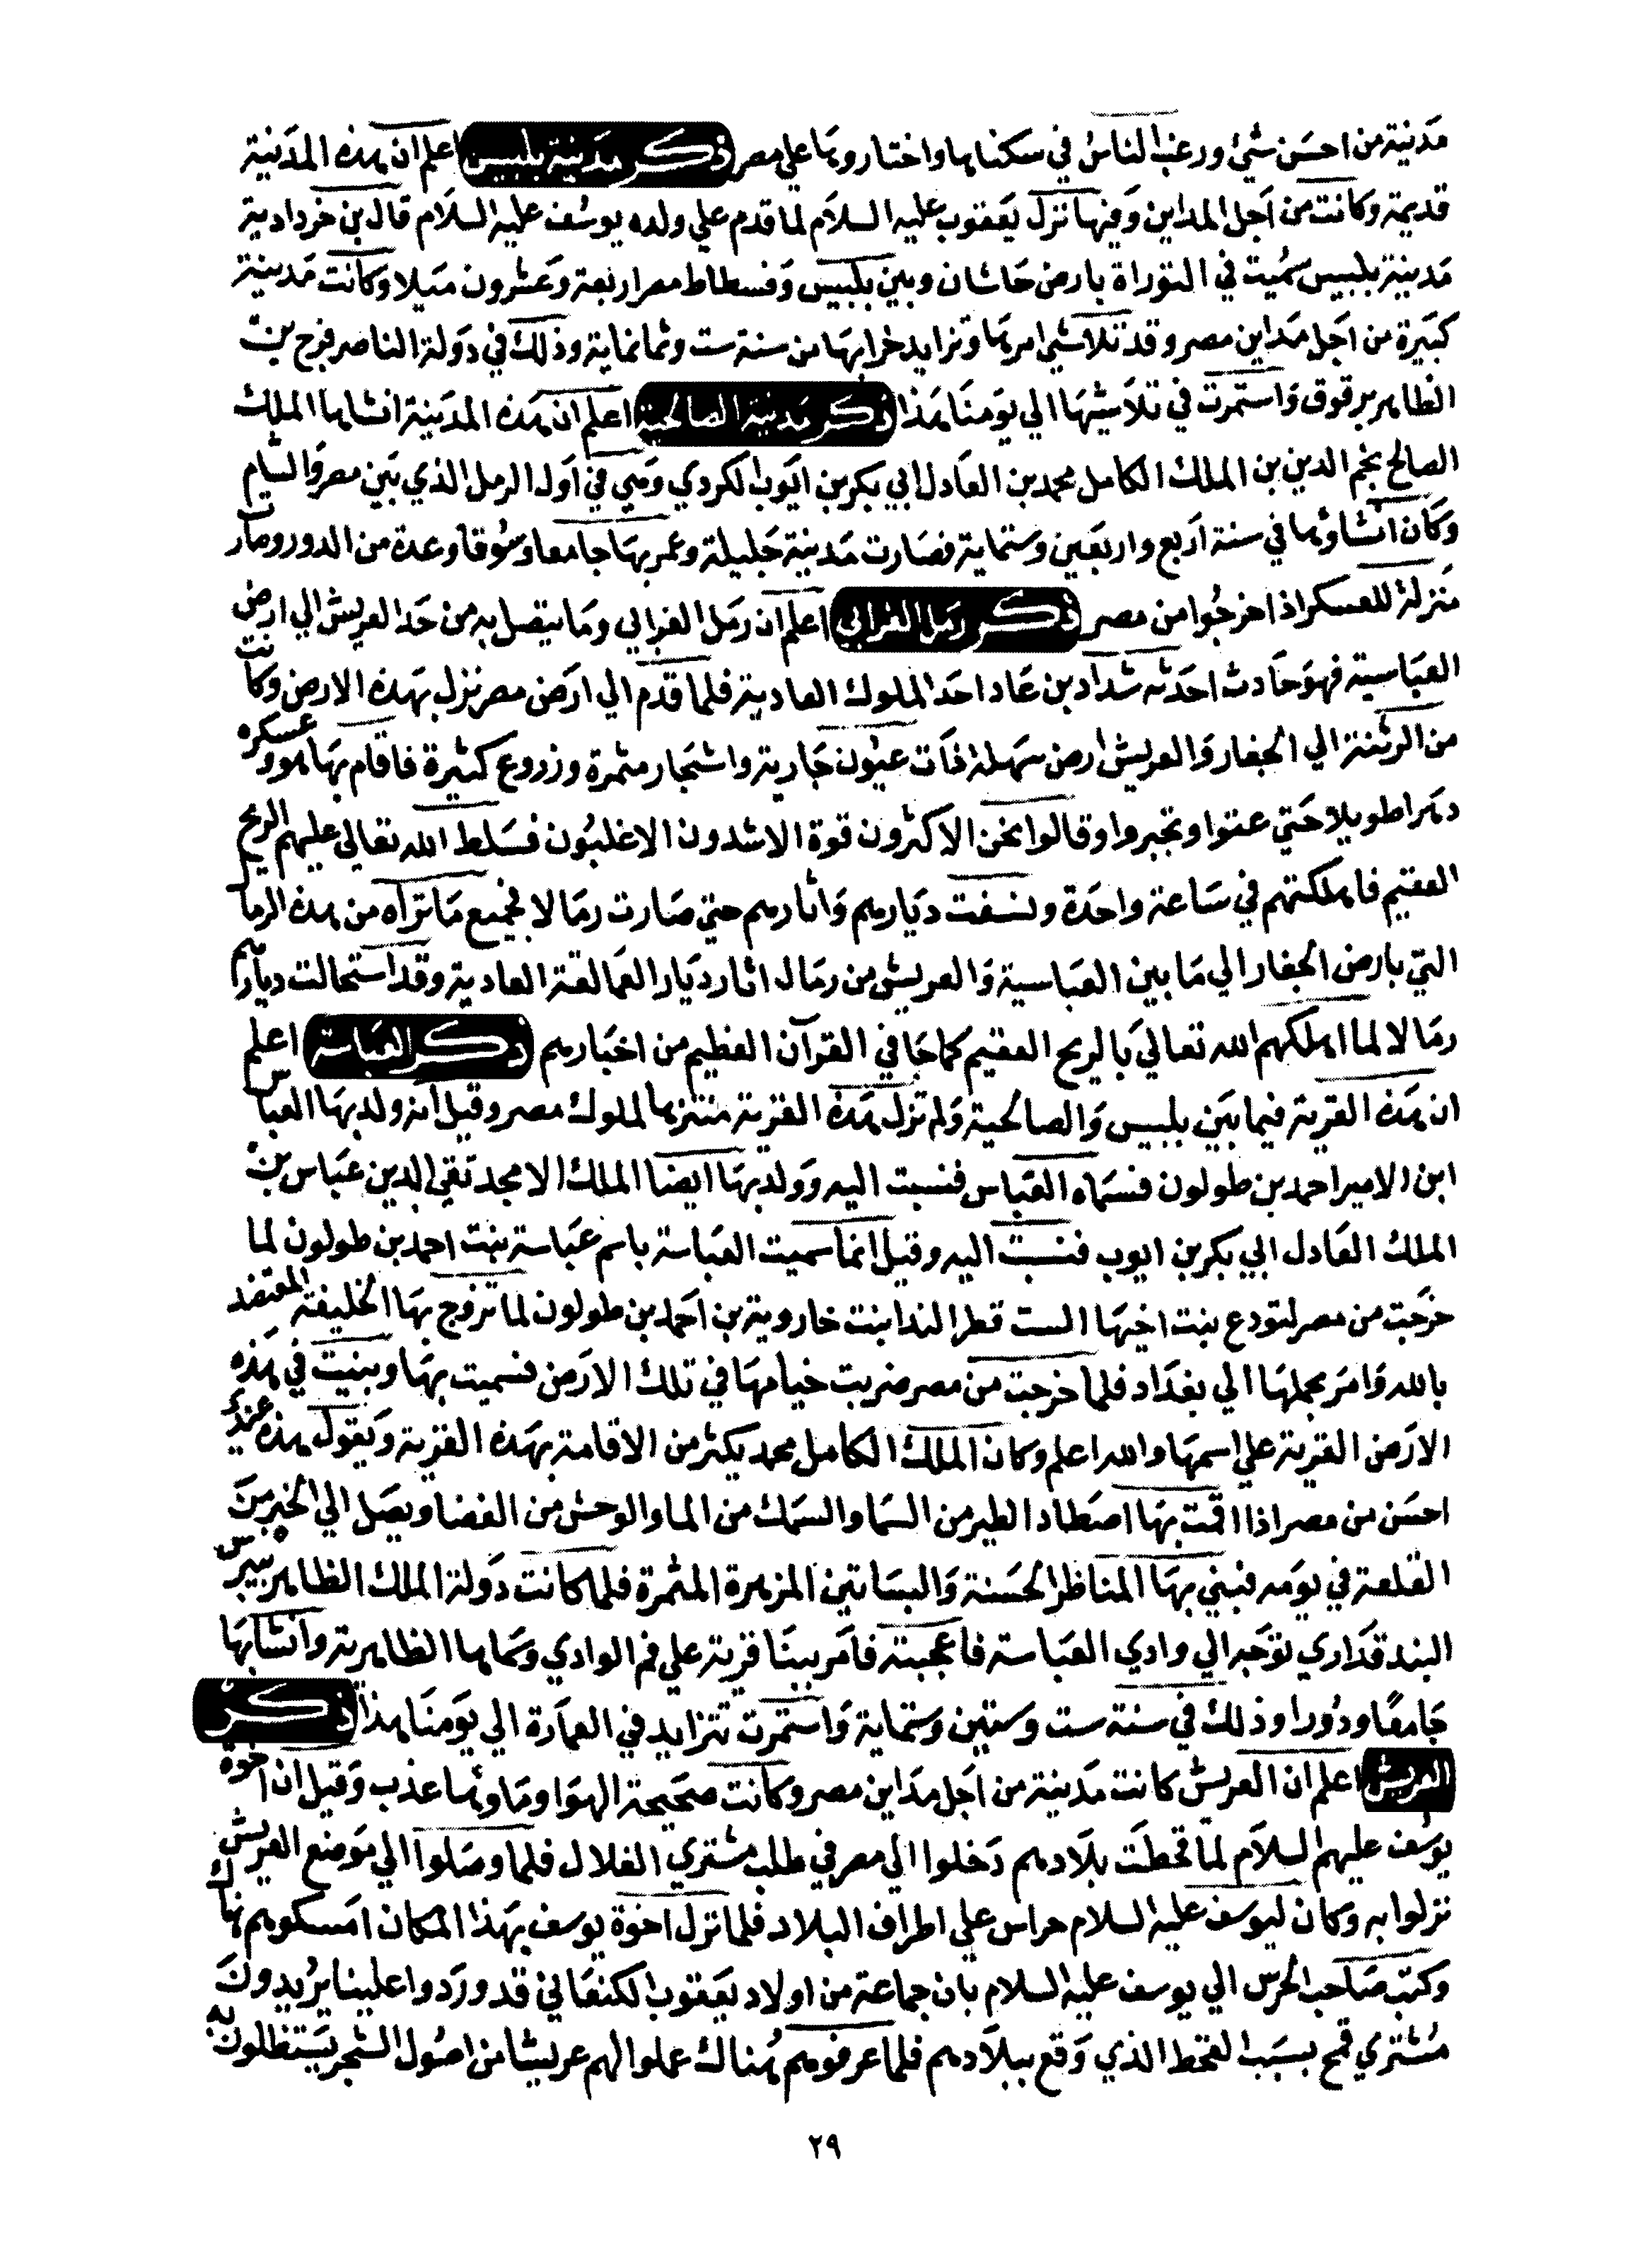 مدنية من احسن شئ ورغب الناس في سكناها واختاروها علي مصر ذكر مدينة بلبيس اعلم ان هذه المدنية
قديمة وكانت من اجل المداين وفيها نزل يعقوب عليه السلام لما قدم علي ولده يوسف عليه السلام قال بن خردادبة
مدينة بلبيس سميت في التوراة بارض حاشان وبين بلبيس وفسطاط مصر اربعة وعشرون ميلا وكانت مدينة
كبيرة من اجل مداين مصر وقد تلاشي امرها وتزايد خرابها من سنة ست وثمانماية وذلك في دولة الناصر فرج بن
الظاهر برقوق واستمرت في تلاشيها الي يومنا هذا ذكر مدينة الصالحية اعلم ان هذه المدينة انشاها الملك
الصالح نجم الدين بن الملك الكامل محمد بن العادل ابي بكر بن ايوب الكردي وهي في اول الرمل الذي بين مصر والشام
وكان انشاوها في سنة اربع واربعين وستماية فصارت مدينة جليلة وعمر بها جامعا وسوقا وعدة من الدور وصار
منزلة للعسكر اذا خرجوا من مصر ذكر رمل الغرابي اعلم ان رمل الغرابي وما يتصل به من حد العريش الي ارض
العباسية فهو حادث احدثه شداد بن عاد احد الملوك العادية فلما قدم الي ارض مصر نزل بهذه الارض وكانت
من الرشنة الي الجفار والعريش ارض سهلة ذات عيون جارية واشجار مثمرة وزروع كثيرة فاقام بها هو وعسكره
دهرا طويلا حتي عتوا وتجبروا وقالوا نحن الاكثرون قوة الاشدون الاغلبون فسلط الله تعالي عليهم الريح
العقيم فاهلكتهم في ساعة واحدة ونسفت ديارهم واثارهم حتي صارت رمالا فجميع ما تراه من هذه الرمال
التي بارض الجفار الي ما بين العباسية والعريش من رمال اثار ديار العمالقة العادية وقد استحالت ديارهم
رمالا لما اهلكهم الله تعالي بالريح العقيم كما جا في القرآن العظيم من اخبارهم ذكر العباسة اعلم
ان هذه القرية فيما بين بلبيس والصالحية ولم تزل هذه القرية منتزها لملوك مصر وقيل انه ولد بها العباس
ابن الامير احمد بن طولون فسماه العباس فنسبت اليه وولد بها ايضا الملك الامجد تقي الدين عباس بن
الملك العادل ابي بكر بن ايوب فنسبت اليه وقيل انما سميت العباسة باسم عباسة بنت احمد بن طولون لما
خرجت من مصر لتودع بنت اخيها الست قطر الندا بنت خارويه بن احمد بن طولون لما تزوج بها الخليفة المعتضد
بالله وامر بحملها الي بغداد فلما خرجت من مصر ضربت خيامها في تلك الارض فسميت بها وبنيت في هذه
الارض القرية علي اسمها والله اعلم وكان الملك الكامل محمد يكثر من الاقامة بهذه القرية ويقول هذه عندي
احسن من مصر اذا اقمت بها اصطاد الطير من السما والسمك من الما والوحش من الفضا ويصل الي الخبز من
القلعة في يومه فبني بها المناظر الحسنة والبساتين المزهرة المثمرة فلما كانت دولة الملك الظاهر بيبرس
البندقداري توجه الي وادي العباسة فاعجبته فامر ببنا قرية علي فم الوادي وسماها الظاهرية وانشا بها
جامعا ودورا وذلك في سنة ست وستين وستماية واستمرت تتزايد في العمارة الي يومنا هذا ذكر
العريش اعلم ان العريش كانت مدينة من اجل مداين مصر وكانت صحيحة الهوا وماوها عذب وقيل ان اخوة
يوسف عليهم السلام لما قحطت بلادهم دخلوا الي مصر في طلب مشتري الغلال فلما وصلوا الي موضع العريش
نزلوا به وكان ليوسف عليه السلام حراس علي اطراف البلاد فلما نزل اخوة يوسف بهذا المكان امسكوهم هناك
وكتب صاحب الحرس الي يوسف عليه السلام بان جماعة من اولاد يعقوب الكنعاني قد وردوا علينا يريدون
مشتري قمح بسبب القحط الذي وقع ببلادهم فلما عرفوهم هناك عملوا لهم عريشا من اصول الشجر يستظلون به
٢٩